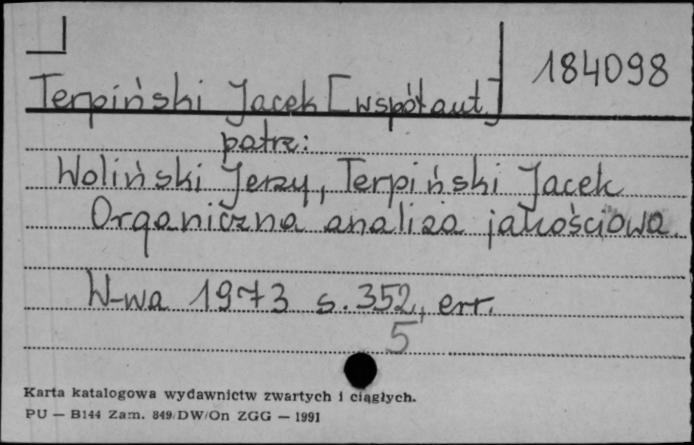 184098
Terpiński Jacek [współaut.]
patrz:
Woliński Jerzy, Terpiński Jacek
Organiczna analiza jakościowa.
W-wa 1973 s. 352, err.
5
Karta katalogowa wydawnictw zwartych i ciągłych.
PU — B144 Zam. 849/DW/On ZGG — 1991